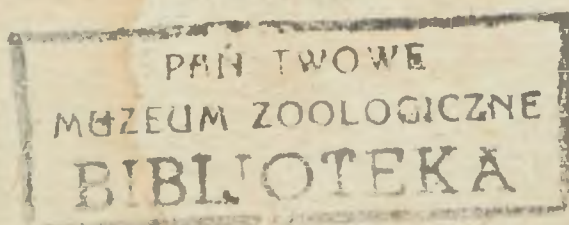 PAŃ TWOWE
MUZEUM ZOOLOGICZNE
BIBLJOTEKA